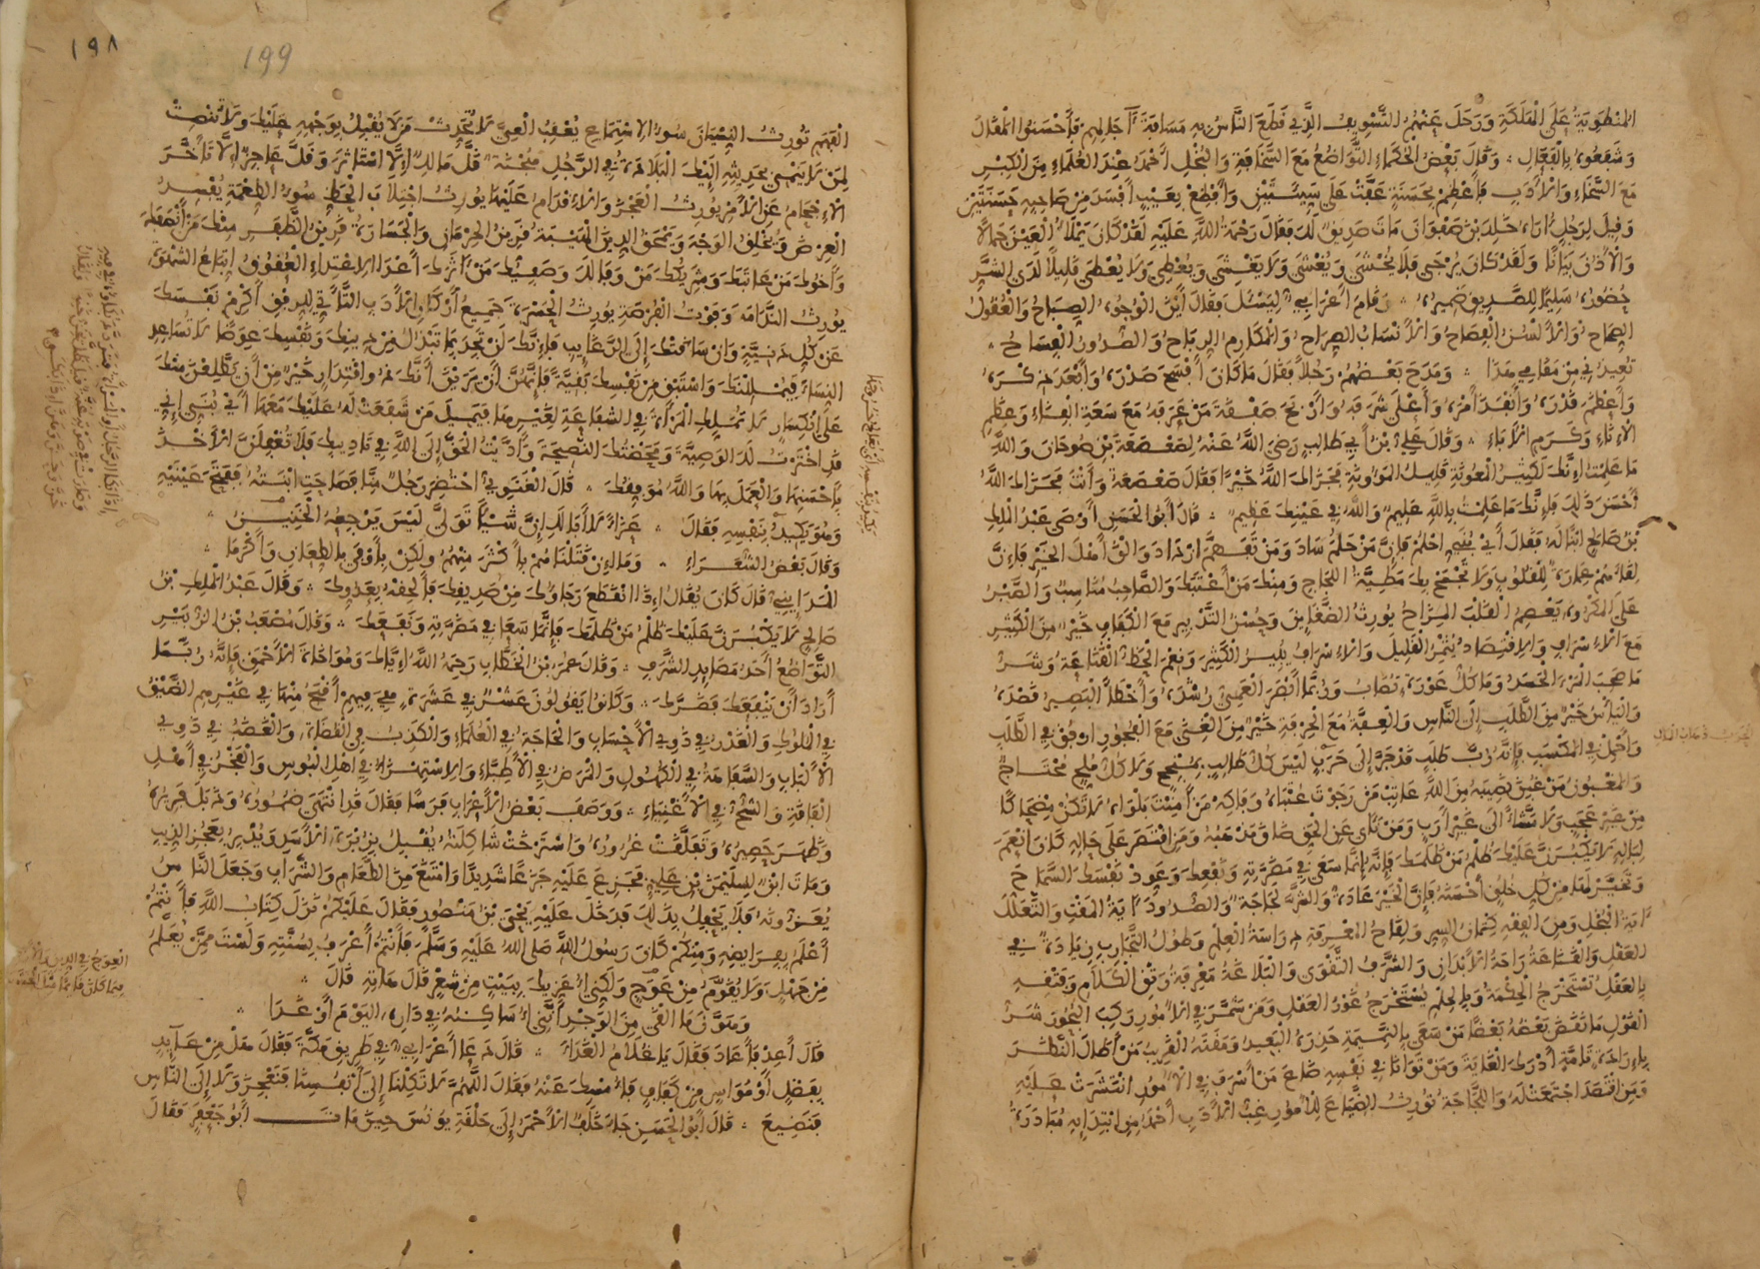 المنطوية على الهلكة ورحل عنهم التسويف الذي قطع الناس به مسافة آجالهم فأحسنوا المقال
وشفعوه بالفعال وقال بعض الحكماء التواضع مع السخافة والبخل أحمد عند العلماء من الكبر
مع السخاء والأدب فأعظم بحسنة عفت على سيئتين وأفظع بعيب أفسد من صاحبه حسنتين
وقيل لرجل أراه خلد بن صفوان مات صديق لك فقال رحمة الله عليه لقد كان يملأ العين جمالا
والأذن بيانا ولقد كان يرجى فلا يخشى ويغشى ولا يغشى ويعطي ولا يعطى قليلا لدى الشر
حضوره سليما للصديق ضميره وقام أعرابي ليسئل فقال أين الوجوه الصباح والعقول
الصحاح والألسن الفصاح والأنساب الصراح والمكارم الرباح والصدور الفساح
تعيذني من مقامي هذا ومدح بعضهم رجلا فقال ما كان أفسح صدره وأبعد ذكره
وأعظم قدره وأنفذ أمره وأعلى شرفه وأربح صفقة من عرفه مع سعة الفناء وعظم
الإناء وكرم الآباء وقال علي بن أبي طالب رضي الله عنه لصعصعة بن صوحان والله
ما علمت إنك لكثير المعونة قليل المؤونة فجزاك الله خيرا فقال صعصعة وأنت فجزاك الله
أحسن ذلك فإنك ما علمت بالله عليم والله في عينك عظيم قال أبو الحسن أوصى عبد الملك
بن صالح ابنا له فقال أي بني احلم فإن من حلم ساد ومن تفهم ازداد والق أهل الخير فإن
لقاءهم عمارة للقلوب ولا تجمح بك مطية اللجاج ومنك من أعتبك والصاحب مناسب والصبر
على المكروه يعصم القلب المزاح يورث الضغاين وحسن التدبير مع الكفاف خير من الكثير
مع الإسراف والاقتصاد يثمر القليل والإسراف يبير الكثير ونعم الحظ القناعة وشر
ما صحب المرء الحسد وما كل عورة تصاب وربما أبصر العمي رشده وأخطأ البصير قصده
واليأس خير من الطلب إلى الناس والعفة مع الحرفة خير من الغنى مع الفجور ارفق في الطلب
وأجمل في المكسب فإنه رب طلب قد جر إلى حرب ليس كل طالب بمنجح ولا كل ملح محتاج
والمغبون من غبن نصيبه من الله عاتب من رجوت عتباه وفاكه من أمنت بلواه لا تكن مضحاكا
من غير عجب ولا مشاء إلى غير أرب ومن نأى عن الحق ضاق مذهبه ومن اقتصر على حاله كان أنعم
لباله لا يكبرن عليك ظلم من ظلمك فإنه إنما سعى في مضرته ونفعك وعود نفسك السماح
وتخير لها من كل خلق أحسنه فإن الخير عادة والشر لجاجة والصدود آية المقت والتعلل
آية البخل ومن الفقه كتمان السر ولقاح المعرفة دراسة العلم وطول التجارب زيادة في
العقل والقناعة راحة الأبدان والشرف التقوى والبلاغة معرفة رتق الكلام وفتقه
بالعقل تستخرج الحكمة وبالحلم يستخرج غور العقل ومن شمر في الأمور ركب البحور شر
القول ما نقض بعضه بعضا من سعى بالنميمة حذره البعيد ومقته القريب من أطال النظر
بإرادة تامة أدرك الغاية ومن توانا في نفسه ضاع من أسرف في الأمور انتشرت عليه
ومن اقتصد اجتمعت له واللجاجة تورث الضياع للأمور غب الأدب أحمد من ابتدايه مبادرة
١٩٨
199
الفهم تورث النسيان سوء الاستماع يعقب العي لا تحدث من لا يقبل بوجهه عليك ولا تنصت
لمن لا ينمي بحديثه إليك البلادة في الرجل هجنة قل مالك إلا استاثر وقل عاجز إلا تأخر
الإحجام عن الأمر يورث العجز والإقدام عليها يورث اجتلاب الحظ سوء الطعمة يفسد
العرض ويخلق الوجه ويمحق الدين الهيبة قرين الحرمان والجسارة قرين الظفر منك من أنصفك
وأخوك من عاتبك وشريكك من وفا لك وصفيك من آثرك أعدا الاعتداء العقوق اتباع الشهوة
يورث الندامة وفوت الفرصة يورث الحسرة جميع أركان الأدب التأتي للرفق أكرم نفسك
عن كل دنية وإن ساقتك إلى الرغايب فإنك لن تجد بما تبذل من دينك ونفسك عوضا لا تساعد
النساء فيمللنك واستبق من نفسك بقية فإنهن إن يرينك أنك ذو اقتدار خير من أن يطلعن منك
على انكسار لا تملك المرأة في الشفاعة لغيرها فيميل من شفعت له عليك معها أي بني إني
قد اخترت لك الوصية ومحضتك النصيحة وأديت الحق إلى الله في تاديبك فلا تغفلن الأخذ
بأحسنها والعمل بها والله موفقك قال الغنوي احتضر رجل منا فصاحت ابنته ففتح عينيه
وهو يكيد بنفسه فقال عزاء لا أبا لك إن شيا تولى ليس يرجعه الحنين
وقال بعض الشعراء وما إن قتلناهم بأكثر منهم ولكن بأوفى بالطعان وأكرما
المدايني قال كان يقال إذا انقطع رجاؤك من صديقك فألحقه بعدوك وقال عبد الملك بن
صالح لا يكبرن عليك ظلم من ظلمك فإنما سعا في مضرته ونفعك وقال مصعب بن الزبير
التواضع أحد مصايد الشرف وقال عمر بن الخطاب رحمه الله إياك ومواخاة الأحمق فإنه ربما
أراد أن ينفعك فضرك وكانوا يقولون عشر في عشرة هي فيهم أقبح منها في غيرهم الضيق
في الملوك والغدر في ذوي الأحساب والحاجة في العلماء والكذب في القضاة والغضب في ذوي
الألباب والسفاهة في الكهول والمرض في الأطباء والاستهزاء في أهل البوس والفخر في أهل
الفاقة والشح في الأغنياء ووصف بعض الأعراب فرسا فقال قد انتهى ضموره وذبل فريره
وظهر حصيره وتفلقت غروره واسترخت شاكلته يقبل بزبرة الأسد ويدبر بعجز الذيب
ومات ابن لسليمن بن علي فجزع عليه جزعا شديدا وامتنع من الطعام والشراب وجعل الناس
يعزونه فلا يحفل بذلك فدخل عليه يحيى بن منصور فقال عليكم نزل كتاب الله فأنتم
أعلم بفرايضه ومنكم كان رسول الله صلى الله عليه وسلم فأنتم أعرف بسنته ولست ممن يعلم
من جهل ولا يقوم من عوج ولكني أعزيك ببيت من شعر قال هاته قال
وهون ما ألقى من الوجد أنني أساكنه في داره اليوم أو غدا
قال أعد فأعاد فقال يا غلام الغداء قال دعا أعرابي في طريق مكة فقال هل من عآيد
بفضل أو مواس من كفاف فأمسك عنه فقال اللهم لا تكلنا إلى أنفسنا فنعجز ولا إلى الناس
فنضيع قال أبو الحسن جاء خلف الأحمر إلى حلقة يونس حين مات أبو جعفر فقال